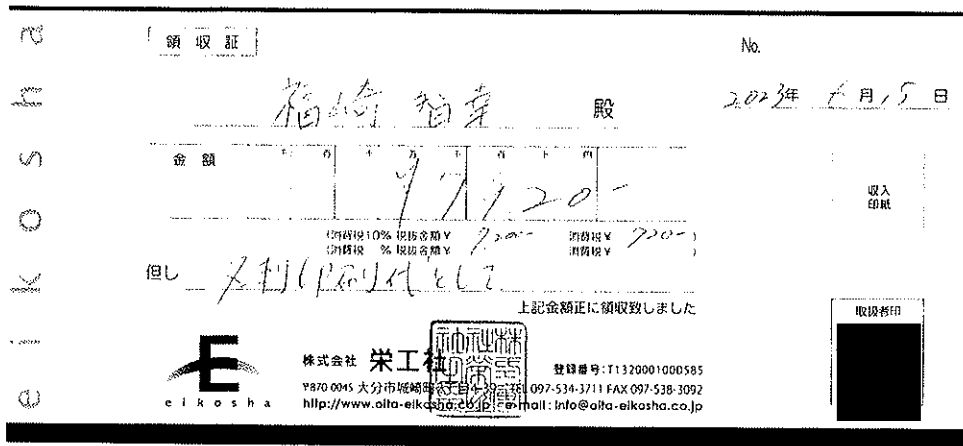 eikosha
領収証
No.
福崎 智幸 殿
2023年 月15日
金額
千 百 十 万 千 百 十 円
収入
印紙
(消費税10% 税抜金額¥ 消費税¥ 720- )
(消費税 % 税抜金額¥ 消費税¥ )
但し 名刺印刷代として
上記金額正に領収致しました
取扱者印
E
eikosha
株式会社 栄工社
登録番号:T1320001000585
〒870-0045 大分市城崎町 TEL 097-534-3711 FAX 097-538-3092
http://www.oita-eikosha.co.jp e-mail:info@oita-eikosha.co.jp